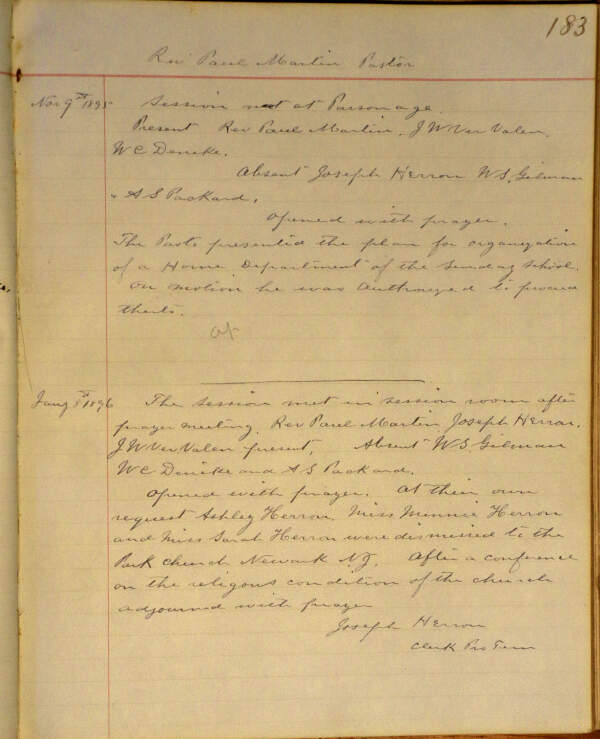 183
Rev Paul Martin Pastor
Nov 9th 1895 Session met at Parsonage.
Present Rev Paul Martin, J W Ver Valen,
W C Denike.
Absent Joseph Herron W S, Gilman
A S Packard,
opened with prayer.
The Pasto presented the plan for organization
of a Home Department of the Sunday school.
on motion he was authroized to proceed
theito.
Jany 8th 1896 The session met in session room after
prayer meeting, Rev Paul Martin, Joseph Herron,
J W Ver Valen present. Absent W S Gilman
W C Denike and A S Packard.
opened with prayer. At their own
request Ashley Herron, Miss Minnie Herron
and Miss Sarah Herron were dismissed to the
Park church Newark N.J. After a conference
on the religous condition of the church
adjourned with prayer
Joseph Herron
Clerk Pro Tem